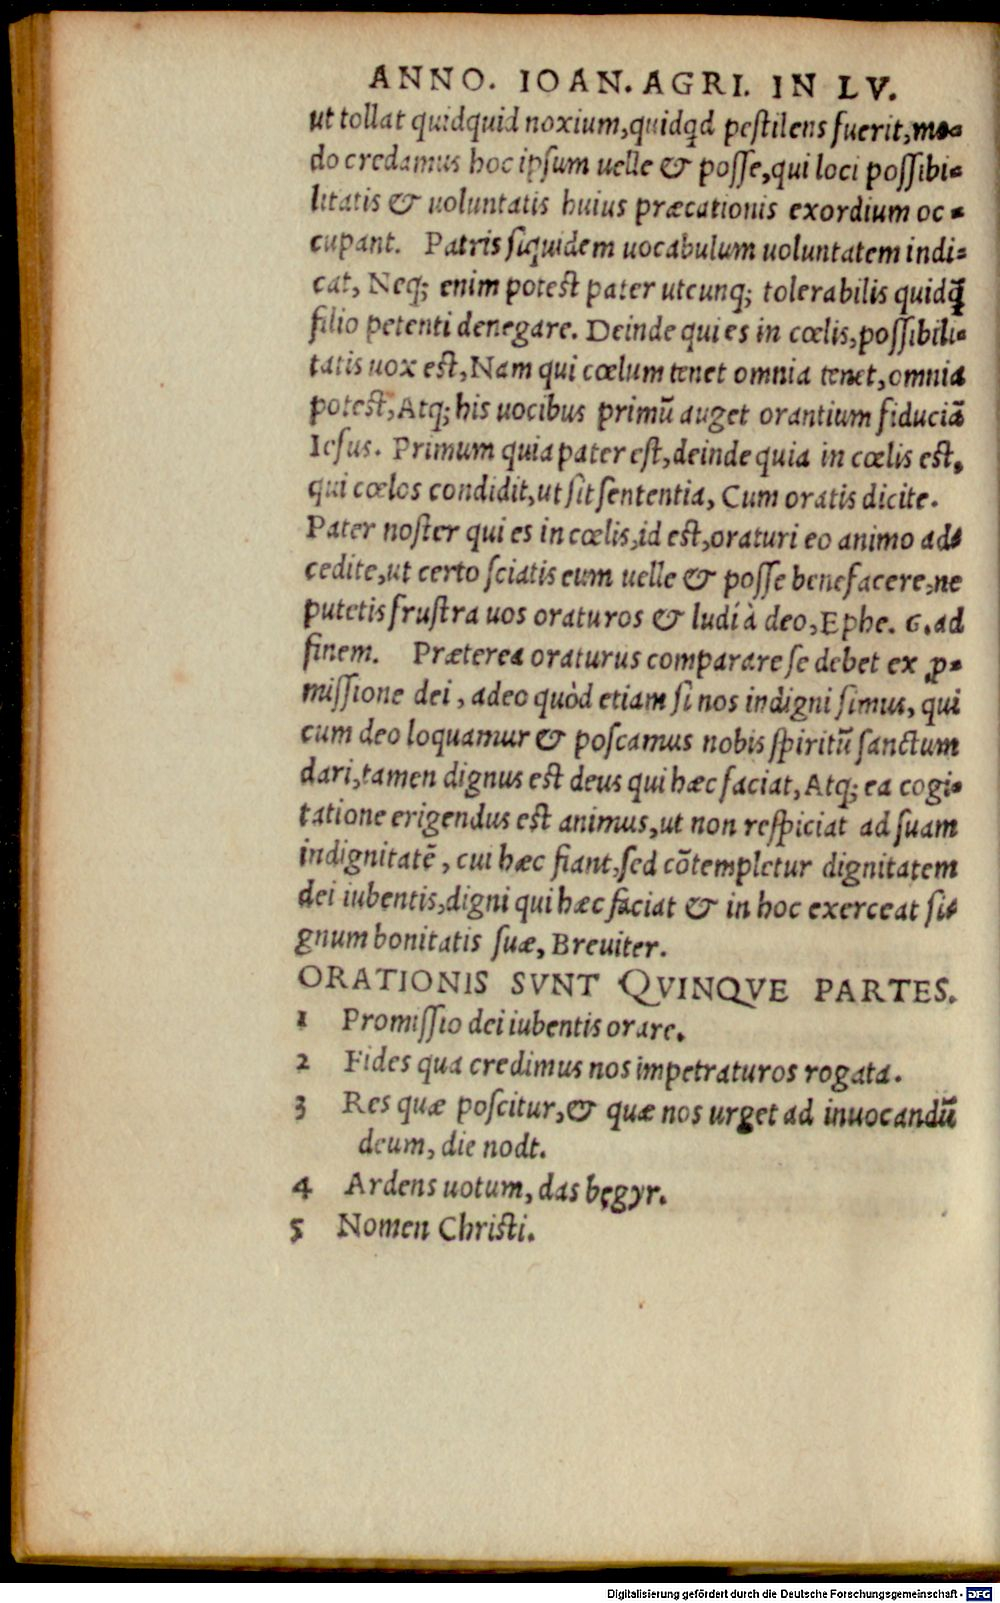 ANNO. IOAN. AGRI. IN LV.
ut tollat quidquid noxium, quidqd pestilens fuerit, mo-
do credamus hoc ipsum uelle & posse, qui loci possibi-
litatis & uoluntatis huius præcationis exordium oc-
cupant. Patris siquidem uocabulum uoluntatem indi-
cat, Neq; enim potest pater utcunq; tolerabilis quidq̃
filio petenti denegare. Deinde qui es in cœlis, possibili-
tatis uox est, Nam qui cœlum tenet omnia tenet, omnia
potest, Atq; his uocibus primũ auget orantium fiduciã
Iesus. Primum quia pater est, deinde quia in cœlis est,
qui cœlos condidit, ut sit sententia, Cum oratis dicite.
Pater noster qui es in cœlis, id est, oraturi eo animo ad-
cedite, ut certo sciatis eum uelle & posse benefacere, ne
putetis frustra uos oraturos & ludi à deo, Ephe. 6. ad
finem. Præterea oraturus comparare se debet ex ꝓ-
missione dei, adeo quòd etiam si nos indigni simus, qui
cum deo loquamur & poscamus nobis spiritũ sanctum
dari, tamen dignus est deus qui hæc faciat, Atq; ea cogi-
tatione erigendus est animus, ut non respiciat ad suam
indignitatẽ, cui hæc fiant, sed cõtempletur dignitatem
dei iubentis, digni qui hæc faciat & in hoc exerceat si-
gnum bonitatis suæ, Breuiter.
ORATIONIS SVNT QVINQVE PARTES.
1 Promissio dei iubentis orare.
2 Fides qua credimus nos impetraturos rogata.
3 Res quæ poscitur, & quæ nos urget ad inuocandũ
deum, die nodt.
4 Ardens uotum, das bęgyr.
5 Nomen Christi.
Digitalisierung gefördert durch die Deutsche Forschungsgemeinschaft - DFG